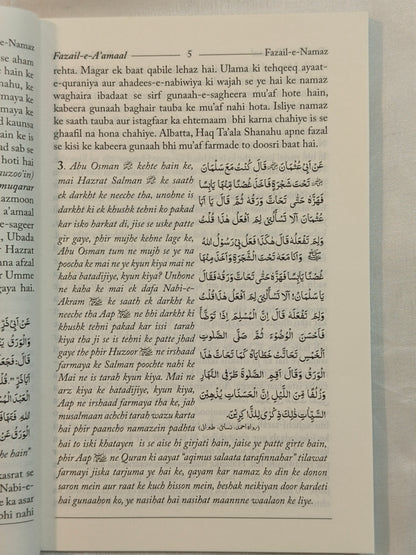 Fazail-e-A'amaal 5 Fazail-e-Namaz
rehta. Magar ek baat qabile lehaz hai. Ulama ki tehqeeq ayaat-
e-quraniya aur ahadees-e-nabiwiya ki wajah se ye hai ke namaz
waghaira ibadaat se sirf gunaah-e-sagheera mu'af hote hain,
kabeera gunaah baghair tauba ke mu'af nahi hota. Isliye namaz
ke saath tauba aur istagfaar ka ehtemaam bhi karna chahiye is se
ghaafil na hona chahiye. Albatta, Haq Ta'ala Shanahu apne fazal
se kisi ke kabeera gunaah bhi mu'af farmade to doosri baat hai.
3. Abu Osman kehte hain ke,
mai Hazrat Salman ke saath
ek darkht ke neeche tha, unohne is
darkht ki ek khushk tehni ko pakad
kar isko harkat di, jise se uske patte
gir gaye, phir mujhe kehne lage ke,
Abu Osman tum ne mujh se ye na
poocha ke mai ne ye kyun kiya mai ne
kaha batadijiye, kyun kiya? Unhone
ne kaha ke mai ek dafa Nabi-e-
Akram ke saath ek darkht ke
neeche tha Aap ne bhi darkht ki
khushk tehni pakad kar issi tarah
kiya tha ji se is tehni ke patte jhad
gaye the phir Huzoor ne irshaad
farmaya ke Salman poochte nahi ke
Mai ne is tarah kyun kiya. Mai ne
arz kiya ke batadijiye ke kyun
kiya, Aap ne irshad farmaya ke, jab
musalmaan achchi tarah wazu karta
hai phir paancho namazein padhta
عَنْ أَبِي عُثْمَانَ قَالَ كُنْتُ مَعَ سَلْمَانَ
تَحْتَ شَجَرَةٍ فَأَخَذَ غُصْنًا مِنْهَا يَابِسًا
فَهَزَّهُ حَتَّى تَحَاتَّ وَرَقُهُ ثُمَّ قَالَ يَا أَبَا
عُثْمَانَ أَلَا تَسْأَلُنِي لِمَ أَفْعَلُ هٰذَا قُلْتُ
وَلِمَ تَفْعَلُهُ قَالَ هٰكَذَا فَعَلَ بِي رَسُولُ اللهِ
وَأَنَا مَعَهُ تَحْتَ الشَّجَرَةِ فَأَخَذَ مِنْهَا
غُصْنًا يَابِسًا فَهَزَّهُ حَتَّى تَحَاتَّ وَرَقُهُ فَقَالَ
يَا سَلْمَانُ! أَلَا تَسْأَلُنِي لِمَ أَفْعَلُ هٰذَا قُلْتُ
وَلِمَ تَفْعَلُهُ قَالَ إِنَّ الْمُسْلِمَ إِذَا تَوَضَّأَ
فَأَحْسَنَ الْوُضُوءَ ثُمَّ صَلَّى الصَّلَوَاتِ
الْخَمْسَ تَحَاتَّتْ خَطَايَاهُ كَمَا تَحَاتَّ هٰذَا
الْوَرَقُ وَقَالَ أَقِمِ الصَّلٰوةَ طَرَفَيِ النَّهَارِ
وَزُلَفًا مِّنَ اللَّيْلِ إِنَّ الْحَسَنَاتِ يُذْهِبْنَ
السَّيِّاٰتِ ذٰلِكَ ذِكْرٰى لِلذَّاكِرِيْنَ.
hai to iski khatayen is se aise hi girjati hain, jaise ye patte girte hain,
phir Aap ne Quran ki aayat "aqimus salaata tarafinnahar" tilawat
farmayi jiska tarjuma ye hai ke, qayam kar namaz ko din ke donon
saron mein aur raat ke kuch hisson mein, beshak neikiyan door kardeti
hai gunaahon ko, ye nasihat hai nasihat maannne waalaon ke liye.